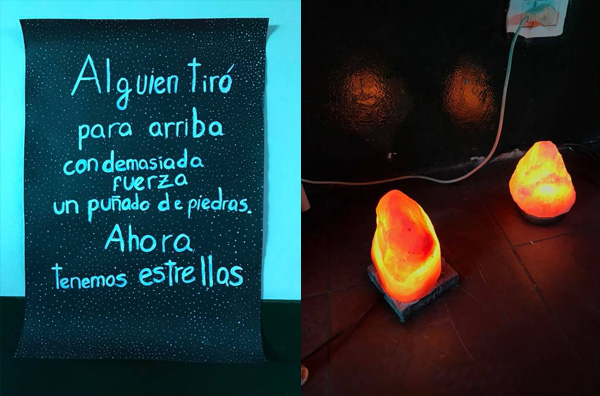 Alguien tiró
para arriba
con demasiada
fuerza
un puñado de piedras.
Ahora
tenemos estrellas